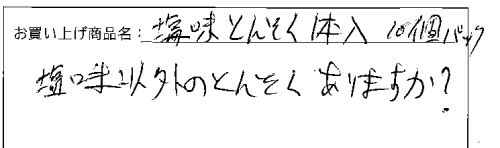 お買い上げ商品名: 塩味とんそく1本入 10個パック
塩味以外のとんそくありますか?